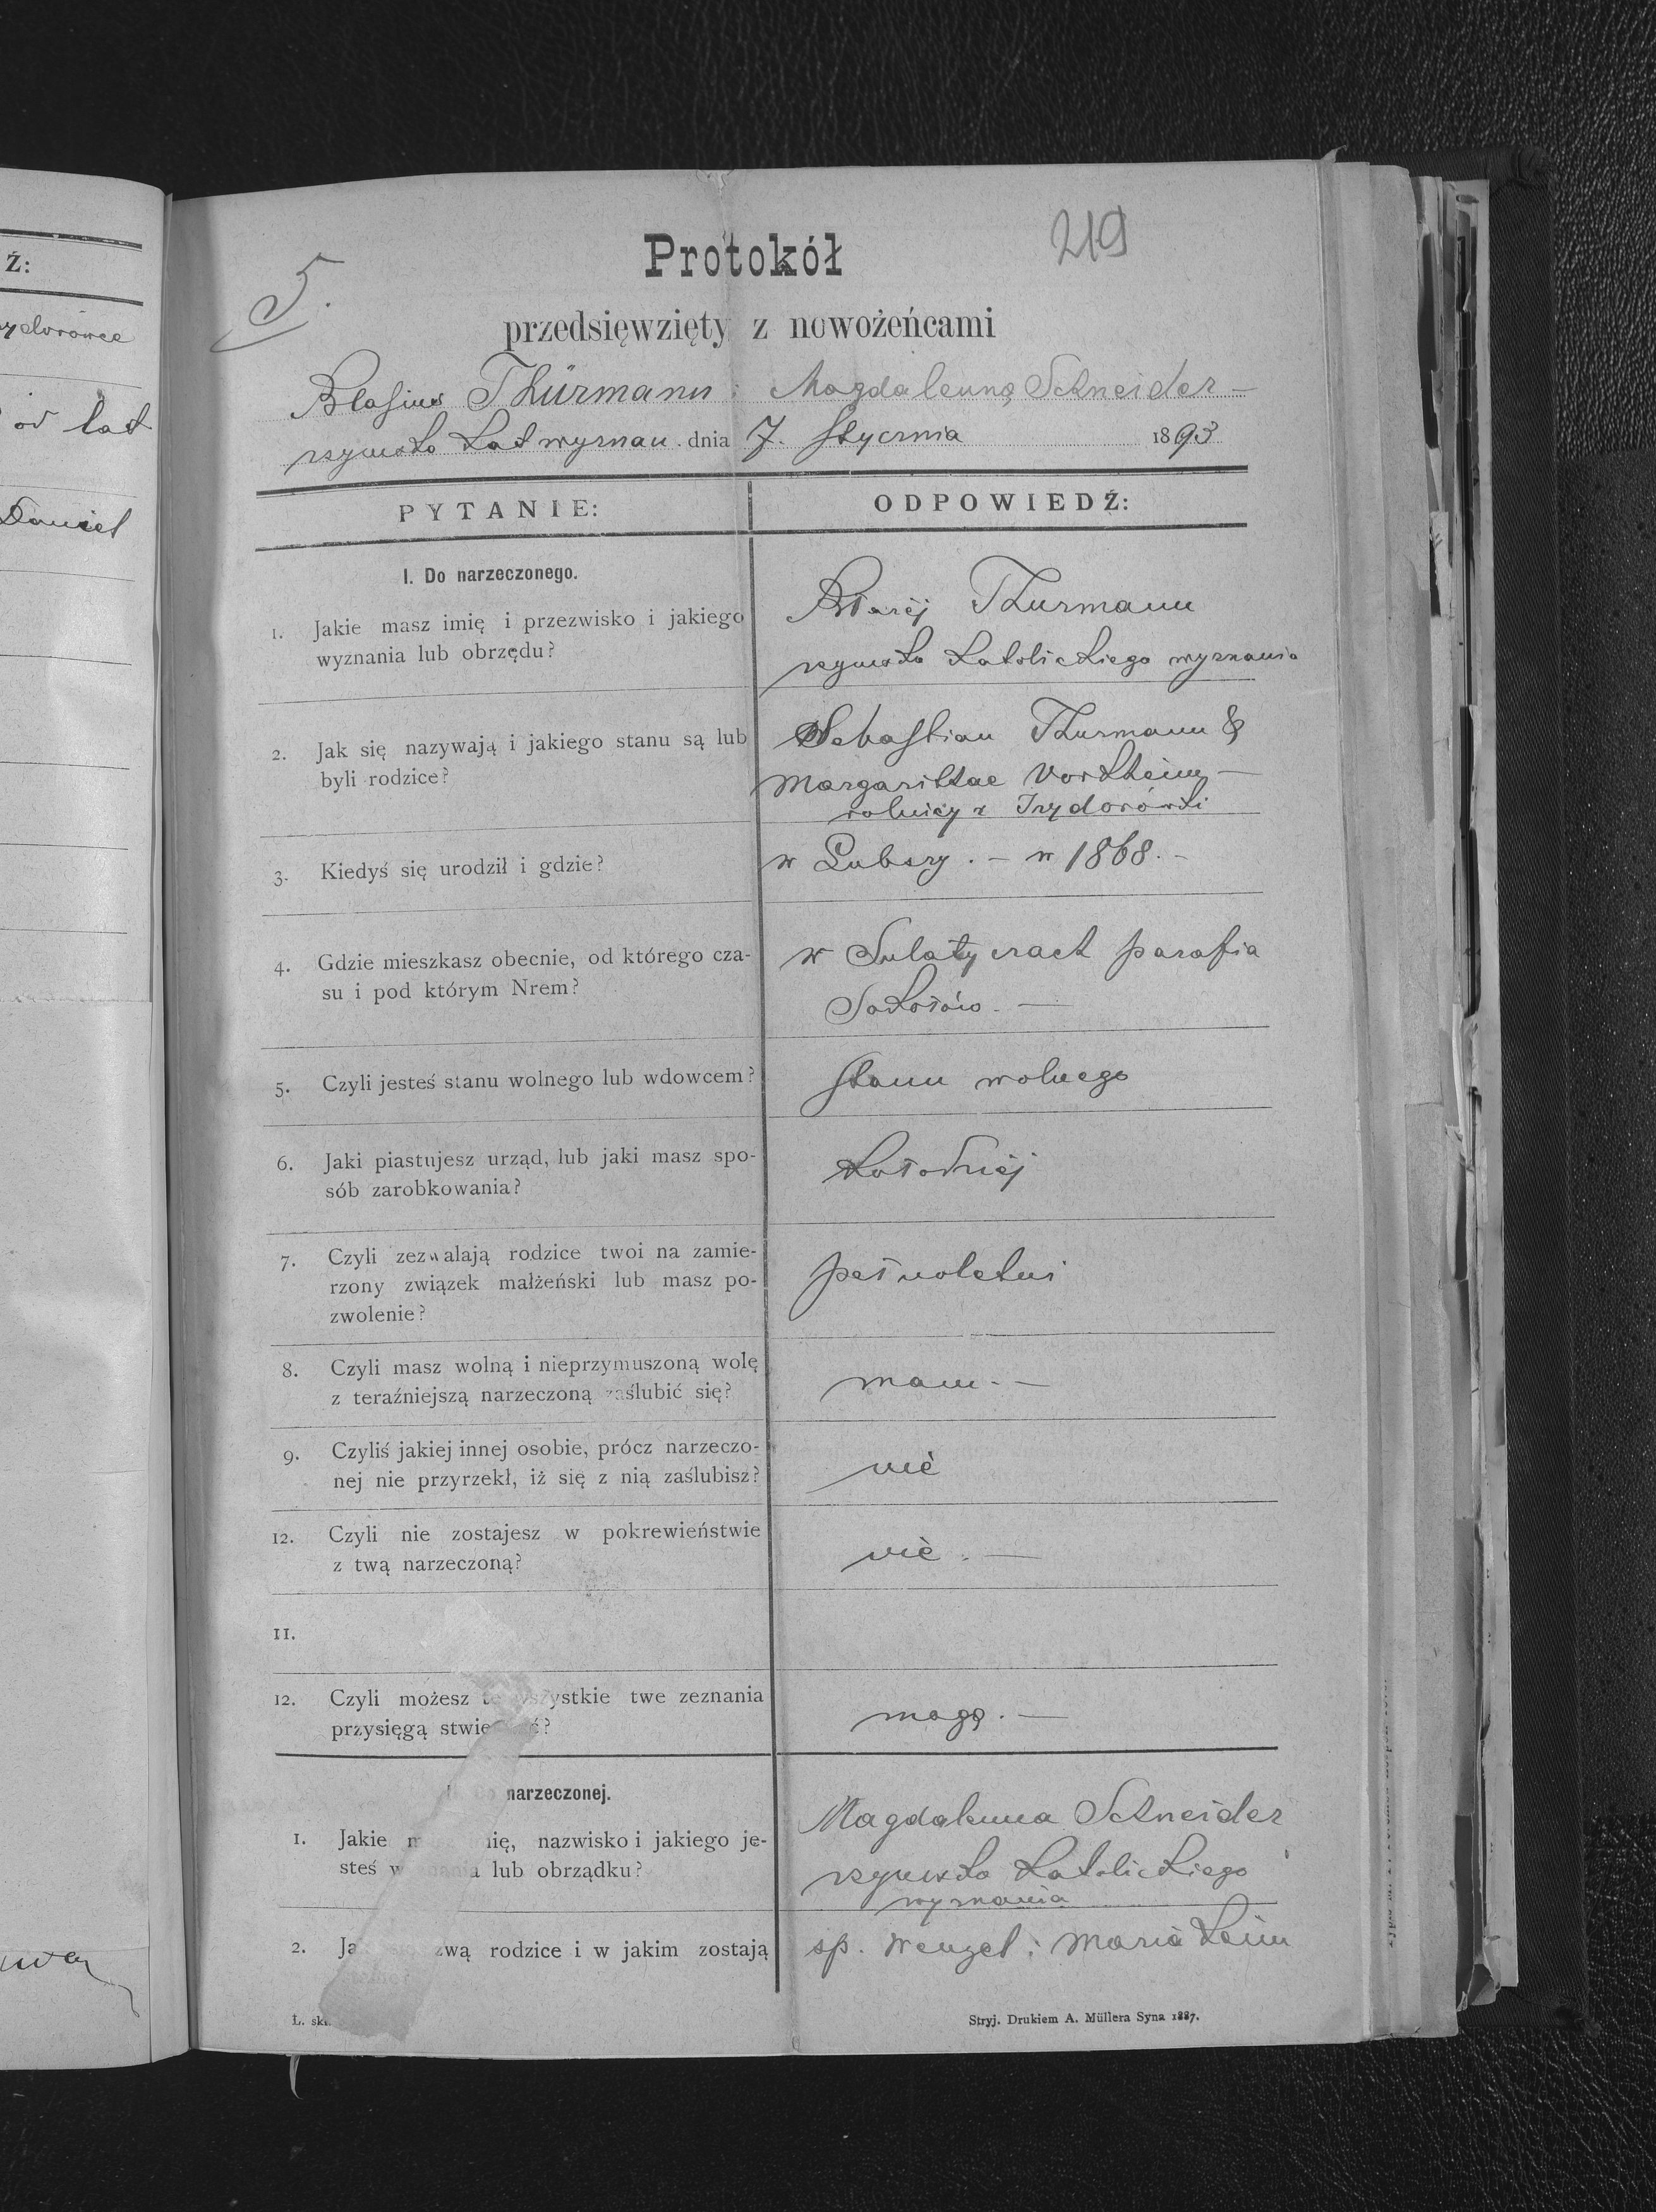 Ź:
od lat
Daniel
219
5.
Protokół
przedsięwzięty z nowożeńcami
Blasius Thürmann i Magdalenną Schneider —
rzymsko kat wyznan. dnia 7. Stycznia 1893
PYTANIE:
ODPOWIEDŹ:
I. Do narzeczonego.
1. Jakie masz imię i przezwisko i jakiego
wyznania lub obrzędu?
Błażej Thurmann
rzymsko katolickiego wyznania
2. Jak się nazywają i jakiego stanu są lub
byli rodzice?
Sebastian Thurmann &
Margarithae —
rolnicy z Izydorówki
3. Kiedyś się urodził i gdzie?
w Lubszy. — w 1868. —
4. Gdzie mieszkasz obecnie, od którego cza-
su i pod którym Nrem?
w Sulatyczach parafia
Sokołów. —
5. Czyli jesteś stanu wolnego lub wdowcem?
stanu wolnego
6. Jaki piastujesz urząd, lub jaki masz spo-
sób zarobkowania?
kołodziéj
7. Czyli zezwalają rodzice twoi na zamie-
rzony związek małżeński lub masz po-
zwolenie?
pełnoletni
8. Czyli masz wolną i nieprzymuszoną wolę
z teraźniejszą narzeczoną zaślubić się?
mam. —
9. Czyliś jakiej innej osobie, prócz narzeczo-
nej nie przyrzekł, iż się z nią zaślubisz?
nié
12. Czyli nie zostajesz w pokrewieństwie
z twą narzeczoną?
nié. —
11.
12. Czyli możesz te wszystkie twe zeznania
przysięgą stwie ć?
mogę. —
narzeczonej.
1. Jakie m nię, nazwisko i jakiego je-
steś w nania lub obrządku?
Magdalenna Schneider
rzymsko katolickiego
wyznania
2. Ja zwą rodzice i w jakim zostają
sp. Wenzel i Maria
Ł. skł.
Stryj. Drukiem A. Müllera Syna 1887.